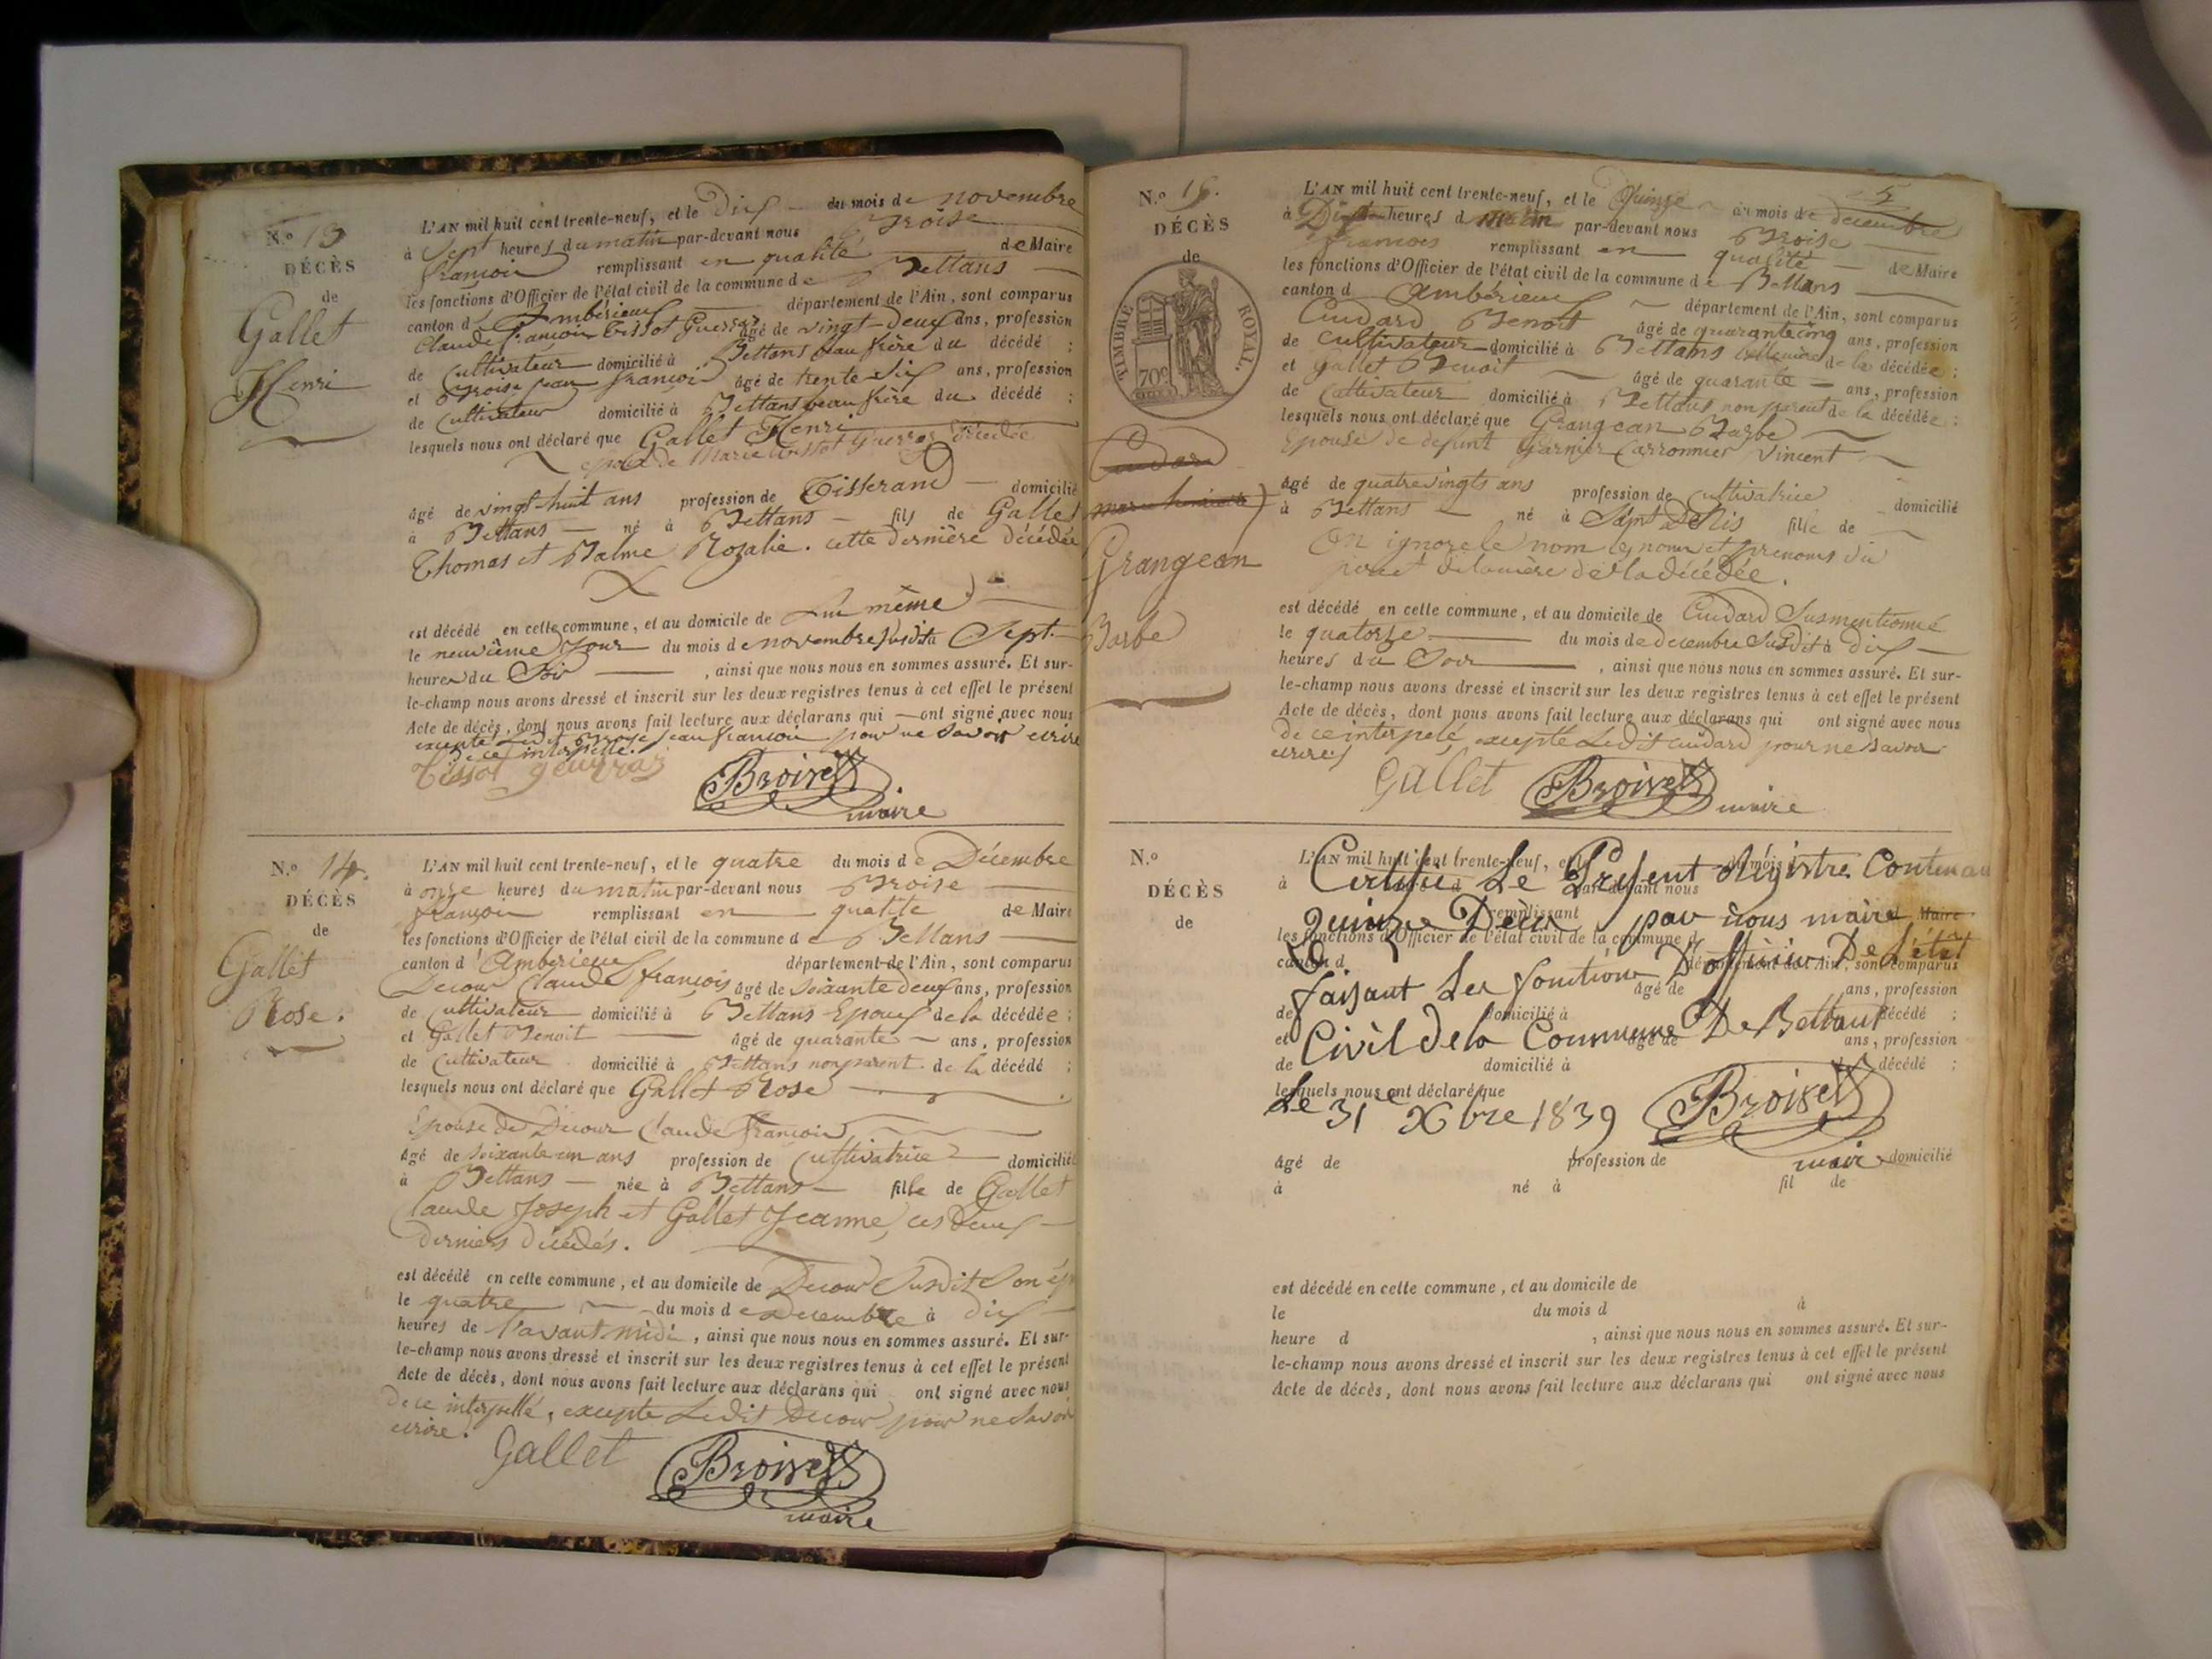 N.o 13
DÉCÈS
de
Gallet
Henri
L'AN mil huit cent trente-neuf, et le Dix du mois de novembre
à Sept heures du matin par-devant nous Broise
françois remplissant en qualité de Maire
les fonctions d'Officier de l'état civil de la commune de Bettans
canton d'Ambérieux département de l'Ain, sont comparus
Claude françois Tissot Guerraz âgé de vingt-deux ans, profession
de Cultivateur domicilié à Bettans beau frère du décédé ;
et Broise jean françois âgé de trente Six ans, profession
de Cultivateur domicilié à Bettans beau frère du décédé ;
lesquels nous ont déclaré que Gallet Henri
époux de Marie Tissot Guerraz Décédée
âgé de vingt-huit ans profession de Tisserand domicilié
à Bettans né à Bettans fils de Gallet
Thomas et Balme Rozalie. cette dernière décédée
est décédé en cette commune, et au domicile de Lui même
le neuvième Jour du mois de novembre susdit à Sept
heures du Soir , ainsi que nous nous en sommes assuré. Et sur-
le-champ nous avons dressé et inscrit sur les deux registres tenus à cet effet le présent
Acte de décès, dont nous avons fait lecture aux déclarans qui ont signé avec nous
excepté Ledit Broise jean françois pour ne savoir écrire
de ce interpellé.
Tissot gerraz Broise
maire
N.o 14.
DÉCÈS
de
Gallet
Rose.
L'AN mil huit cent trente-neuf, et le quatre du mois de Décembre
à onze heures du matin par-devant nous Broise
françois remplissant en qualité de Maire
les fonctions d'Officier de l'état civil de la commune de Bettans
canton d'Ambérieux département de l'Ain, sont comparus
Decour Claude françois âgé de soixante deux ans, profession
de cultivateur domicilié à Bettans Epoux de la décédée ;
et Gallet Benoit âgé de quarante ans, profession
de Cultivateur domicilié à Bettans non parent de la décédé ;
lesquels nous ont déclaré que Gallet Rose
Epouse de Decour Claude françois
âgé de soixante un ans profession de Cultivatrice domicilié
à Bettans née à Bettans fille de Gallet
Claude Joseph et Gallet Jeanne, ces deux
derniers décédés.
est décédé en cette commune, et au domicile de Decour Susdit Son
le quatre du mois de Decembre à dix
heures de l'avant midi , ainsi que nous nous en sommes assuré. Et sur-
le-champ nous avons dressé et inscrit sur les deux registres tenus à cet effet le présent
Acte de décès, dont nous avons fait lecture aux déclarans qui ont signé avec nous
de ce interpellé, excepté Ledit Decour pour ne savoir
écrire.
Gallet Broise
maire
N.o 15.
DÉCÈS
de
TIMBRE ROYAL.
70c
Cudard
Grangean
Barbe
5
L'AN mil huit cent trente-neuf, et le Quinze du mois de decembre
à Dix heures d matin par-devant nous Broise
francois remplissant en qualité de Maire
les fonctions d'Officier de l'état civil de la commune de Bettans
canton d Ambérieux département de l'Ain, sont comparus
Cudard Benoit âgé de quarante cinq ans, profession
de Cultivateur domicilié à Bettans de la décédée ;
et Gallet Benoit âgé de quarante ans, profession
de Cultivateur domicilié à Bettans non parent de la décédée ;
lesquels nous ont déclaré que Grangean Barbe
Epouse de defunt Garnier Carronnier Vincent
âgé de quatrevingts ans profession de Cultivatrice domicilié
à Bettans né à Saint Denis fille de
On ignore le nom les noms et prenoms du
père et de la mère de la décédée.
est décédé en cette commune, et au domicile de Cudard Susmentionné
le quatorze du mois de decembre Susdit à dix
heures du Soir , ainsi que nous nous en sommes assuré. Et sur-
le-champ nous avons dressé et inscrit sur les deux registres tenus à cet effet le présent
Acte de décès, dont nous avons fait lecture aux déclarans qui ont signé avec nous
de ce interpelé, excepté Ledit Cudard pour ne savoir
écrire
Gallet Broise
maire
N.o
DÉCÈS
de
L'AN mil huit cent trente-neuf, et le du mois d
à heure d par-devant nous
Certifié Le Présent Régistre Contenant
remplissant d Maire
Quinze Décès par nous maire
les fonctions d'Officier de l'état civil de la commune d
canton d département de l'Ain, sont comparus
faisant Les fonctions D'officier De L'état
âgé de ans, profession
de domicilié à décédé ;
Civil de la Commune De Bettans
et âgé de ans, profession
de domicilié à décédé ;
lesquels nous ont déclaré que
Le 31 Xbre 1839 Broise
maire
âgé de profession de domicilié
à né à fil de
est décédé en cette commune, et au domicile de
le du mois d à
heure d , ainsi que nous nous en sommes assuré. Et sur-
le-champ nous avons dressé et inscrit sur les deux registres tenus à cet effet le présent
Acte de décès, dont nous avons fait lecture aux déclarans qui ont signé avec nous